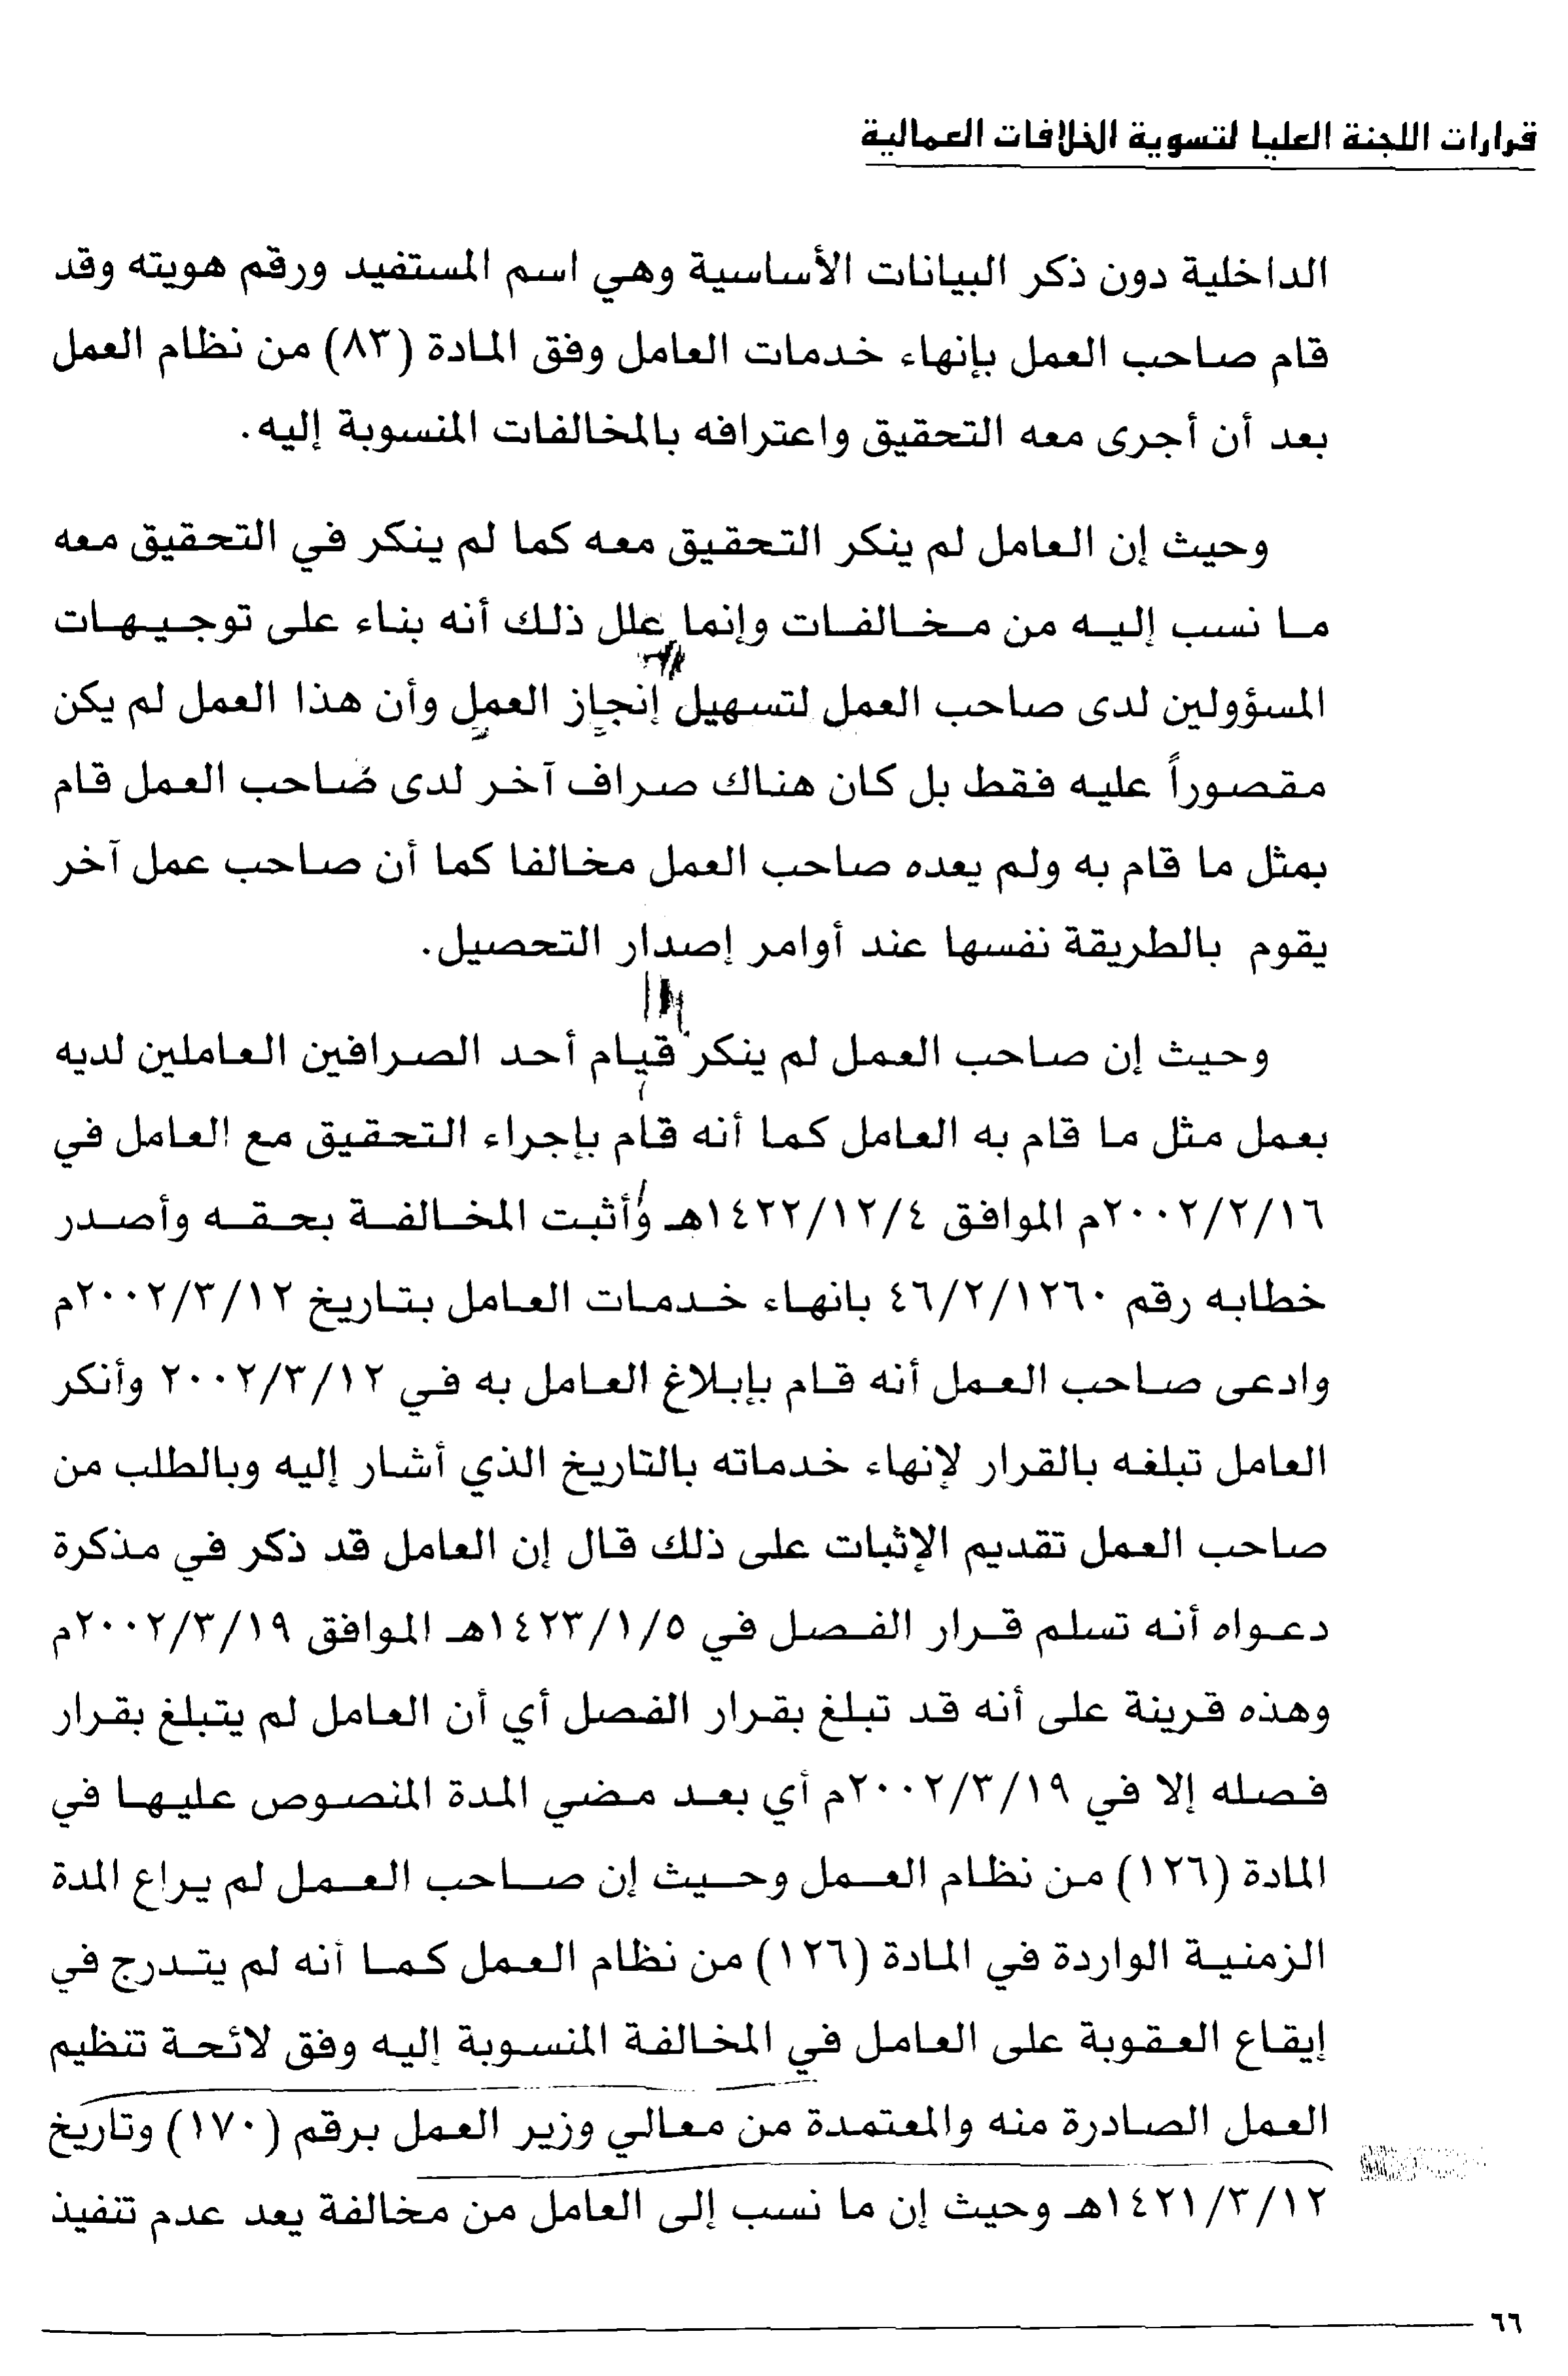 قرارات اللجنة العليا لتسوية الخلافات العمالية
الداخلية دون ذكر البيانات الأساسية وهي اسم المستفيد ورقم هويته وقد
قام صاحب العمل بإنهاء خدمات العامل وفق المادة (٨٣) من نظام العمل
بعد أن أجرى معه التحقيق واعترافه بالمخالفات المنسوبة إليه.
وحيث إن العامل لم ينكر التحقيق معه كما لم ينكر في التحقيق معه
ما نسب إليه من مخالفات وإنما علل ذلك أنه بناء على توجيهات
المسؤولين لدى صاحب العمل لتسهيل إنجاز العمل وأن هذا العمل لم يكن
مقصوراً عليه فقط بل كان هناك صراف آخر لدى صاحب العمل قام
بمثل ما قام به ولم يعده صاحب العمل مخالفا كما أن صاحب عمل آخر
يقوم بالطريقة نفسها عند أوامر إصدار التحصيل.
وحيث إن صاحب العمل لم ينكر قيام أحد الصرافين العاملين لديه
بعمل مثل ما قام به العامل كما أنه قام بإجراء التحقيق مع العامل في
٢٠٠٢/٢/١٦م الموافق ١٤٢٢/١٢/٤هـ وأثبت المخالفة بحقه وأصدر
خطابه رقم ٤٦/٢/١٢٦٠ بانهاء خدمات العامل بتاريخ ٢٠٠٢/٣/١٢م
وادعى صاحب العمل أنه قام بإبلاغ العامل به في ٢٠٠٢/٣/١٢ وأنكر
العامل تبلغه بالقرار لإنهاء خدماته بالتاريخ الذي أشار إليه وبالطلب من
صاحب العمل تقديم الإثبات على ذلك قال إن العامل قد ذكر في مذكرة
دعواه أنه تسلم قرار الفصل في ١٤٢٣/١/٥هـ الموافق ٢٠٠٢/٣/١٩م
وهذه قرينة على أنه قد تبلغ بقرار الفصل أي أن العامل لم يتبلغ بقرار
فصله إلا في ٢٠٠٢/٣/١٩م أي بعد مضي المدة المنصوص عليها في
المادة (١٢٦) من نظام العمل وحيث إن صاحب العمل لم يراع المدة
الزمنية الواردة في المادة (١٢٦) من نظام العمل كما أنه لم يتدرج في
إيقاع العقوبة على العامل في المخالفة المنسوبة إليه وفق لائحة تنظيم
العمل الصادرة منه والمعتمدة من معالي وزير العمل برقم (١٧٠) وتاريخ
١٤٢١/٣/١٢هـ وحيث إن ما نسب إلى العامل من مخالفة يعد عدم تنفيذ
٦٦